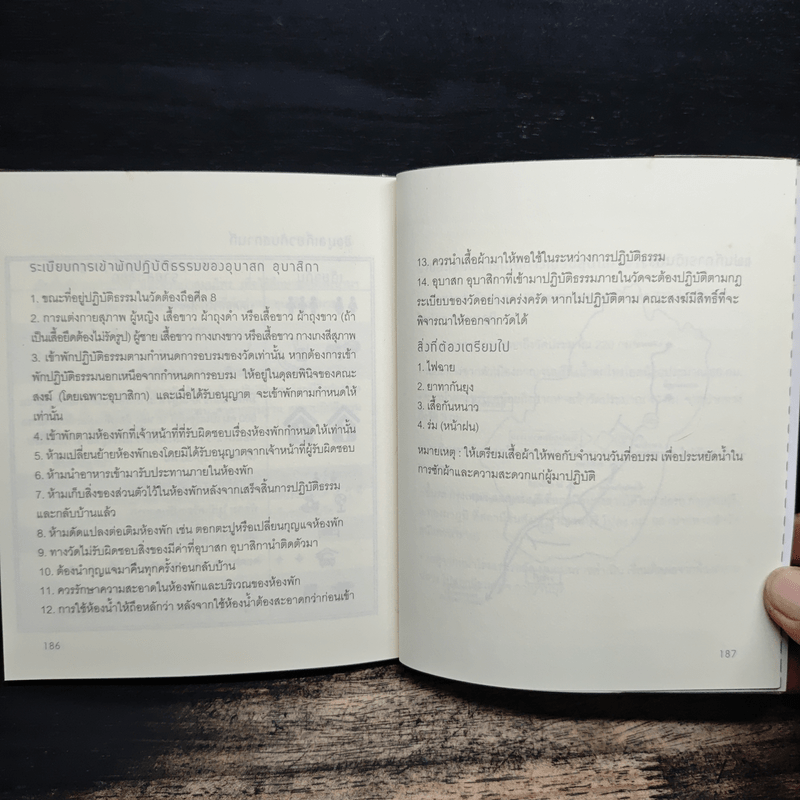 ระเบียบการเข้าพักปฏิบัติธรรมของอุบาสก อุบาสิกา
1. ขณะที่อยู่ปฏิบัติธรรมในวัดต้องถือศีล 8
2. การแต่งกายสุภาพ ผู้หญิง เสื้อขาว ผ้าถุงดำ หรือเสื้อขาว ผ้าถุงขาว (ถ้า
เป็นเสื้อยืดต้องไม่รัดรูป) ผู้ชาย เสื้อขาว กางเกงขาว หรือเสื้อขาว กางเกงสีสุภาพ
3. เข้าพักปฏิบัติธรรมตามกำหนดการอบรมของวัดเท่านั้น หากต้องการเข้า
พักปฏิบัติธรรมนอกเหนือจากกำหนดการอบรม ให้อยู่ในดุลยพินิจของคณะ
สงฆ์ (โดยเฉพาะอุบาสิกา) และเมื่อได้รับอนุญาต จะเข้าพักตามกำหนดให้
เท่านั้น
4. เข้าพักตามห้องพักที่เจ้าหน้าที่ที่รับผิดชอบเรื่องห้องพักกำหนดให้เท่านั้น
5. ห้ามเปลี่ยนย้ายห้องพักเองโดยมิได้รับอนุญาตจากเจ้าหน้าที่ผู้รับผิดชอบ
6. ห้ามนำอาหารเข้ามารับประทานภายในห้องพัก
7. ห้ามเก็บสิ่งของส่วนตัวไว้ในห้องพักหลังจากเสร็จสิ้นการปฏิบัติธรรม
และกลับบ้านแล้ว
8. ห้ามดัดแปลงต่อเติมห้องพัก เช่น ตอกตะปูหรือเปลี่ยนกุญแจห้องพัก
9. ทางวัดไม่รับผิดชอบสิ่งของมีค่าที่อุบาสก อุบาสิกานำติดตัวมา
10. ต้องนำกุญแจมาคืนทุกครั้งก่อนกลับบ้าน
11. ควรรักษาความสะอาดในห้องพักและบริเวณของห้องพัก
12. การใช้ห้องน้ำให้ถือหลักว่า หลังจากใช้ห้องน้ำต้องสะอาดกว่าก่อนเข้า
186
13. ควรนำเสื้อผ้ามาให้พอใช้ในระหว่างการปฏิบัติธรรม
14. อุบาสก อุบาสิกาที่เข้ามาปฏิบัติธรรมภายในวัดจะต้องปฏิบัติตามกฎ
ระเบียบของวัดอย่างเคร่งครัด หากไม่ปฏิบัติตาม คณะสงฆ์มีสิทธิ์ที่จะ
พิจารณาให้ออกจากวัดได้
สิ่งที่ต้องเตรียมไป
1. ไฟฉาย
2. ยาทากันยุง
3. เสื้อกันหนาว
4. ร่ม (หน้าฝน)
หมายเหตุ : ให้เตรียมเสื้อผ้าให้พอกับจำนวนวันที่อบรม เพื่อประหยัดน้ำใน
การซักผ้าและความสะดวกแก่ผู้มาปฏิบัติ
187